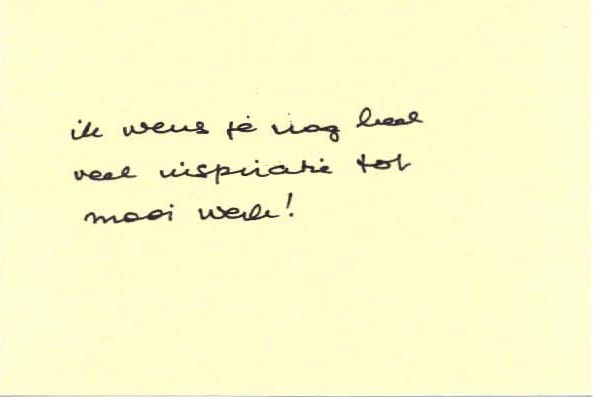 ik wens je nog heel
veel inspiratie tot
mooi werk!